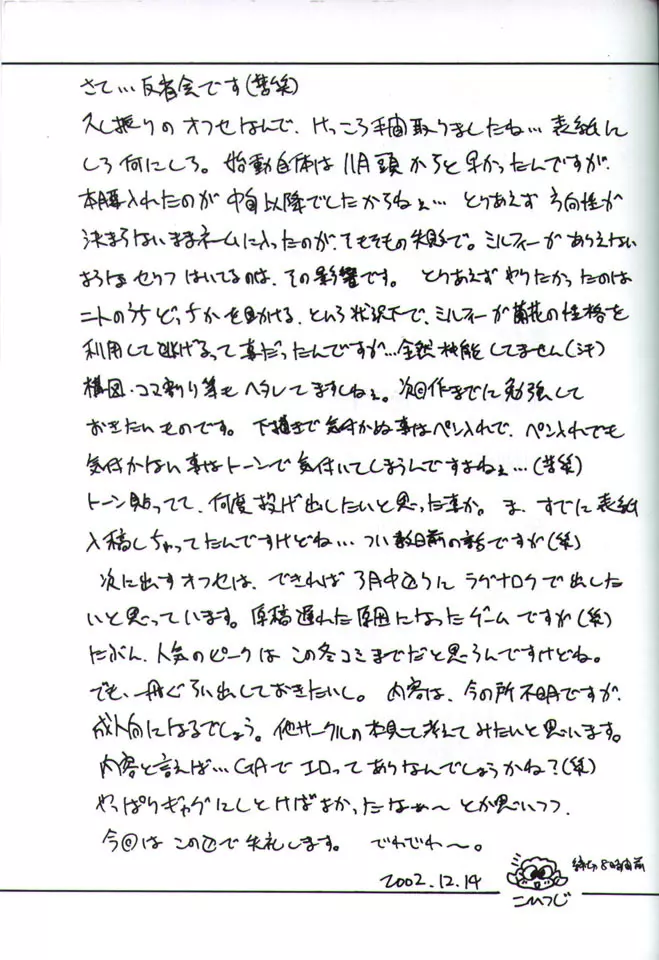 さて…反省会です(苦笑)
久し振りのオフセなんで、けっこう手間取りましたね…表紙に
しろ何にしろ。始動自体は11月頭からと早かったんですが、
本腰入れたのが中旬以降でしたからねぇ…とりあえず方向性が
決まらないままネームに入ったのが、そもそもの失敗で。ミルフィーがありえない
ようなセリフはいてるのは、その影響です。とりあえずやりたかったのは
ニトのうちどっちかを助ける、という状況下で、ミルフィーが蘭花の性格を
利用して逃げるって事だったんですが…全然機能してません(汗)
構図・コマ割り等もヘタレてますしねぇ。次回作までに勉強して
おきたいものです。下描きで気付かぬ事はペン入れで、ペン入れでも
気付かない事はトーンで気付いてしまうんですよねぇ…(苦笑)
トーン貼ってて、何度投げ出したいと思った事か。ま、すでに表紙
入稿しちゃってたんですけどね…つい数日前の話ですが(笑)
次に出すオフセは、できれば3月中辺りにラグナロクで出した
いと思っています。原稿遅れた原因になったゲームですが(笑)
たぶん、人気のピークはこの冬コミまでだと思うんですけどね。
でも、一冊ぐらい出しておきたいし。内容は、今の所不明ですが、
成人向になるでしょう。他サークルの本見て考えてみたいと思います。
内容と言えば…GAでエロってありなんでしょうかね?(笑)
やっぱりギャグにしとけばよかったなぁ〜とか思いつつ、
今回はこの辺で失礼します。でわでわ〜。
2002.12.14
締切8時間前
こひつじ